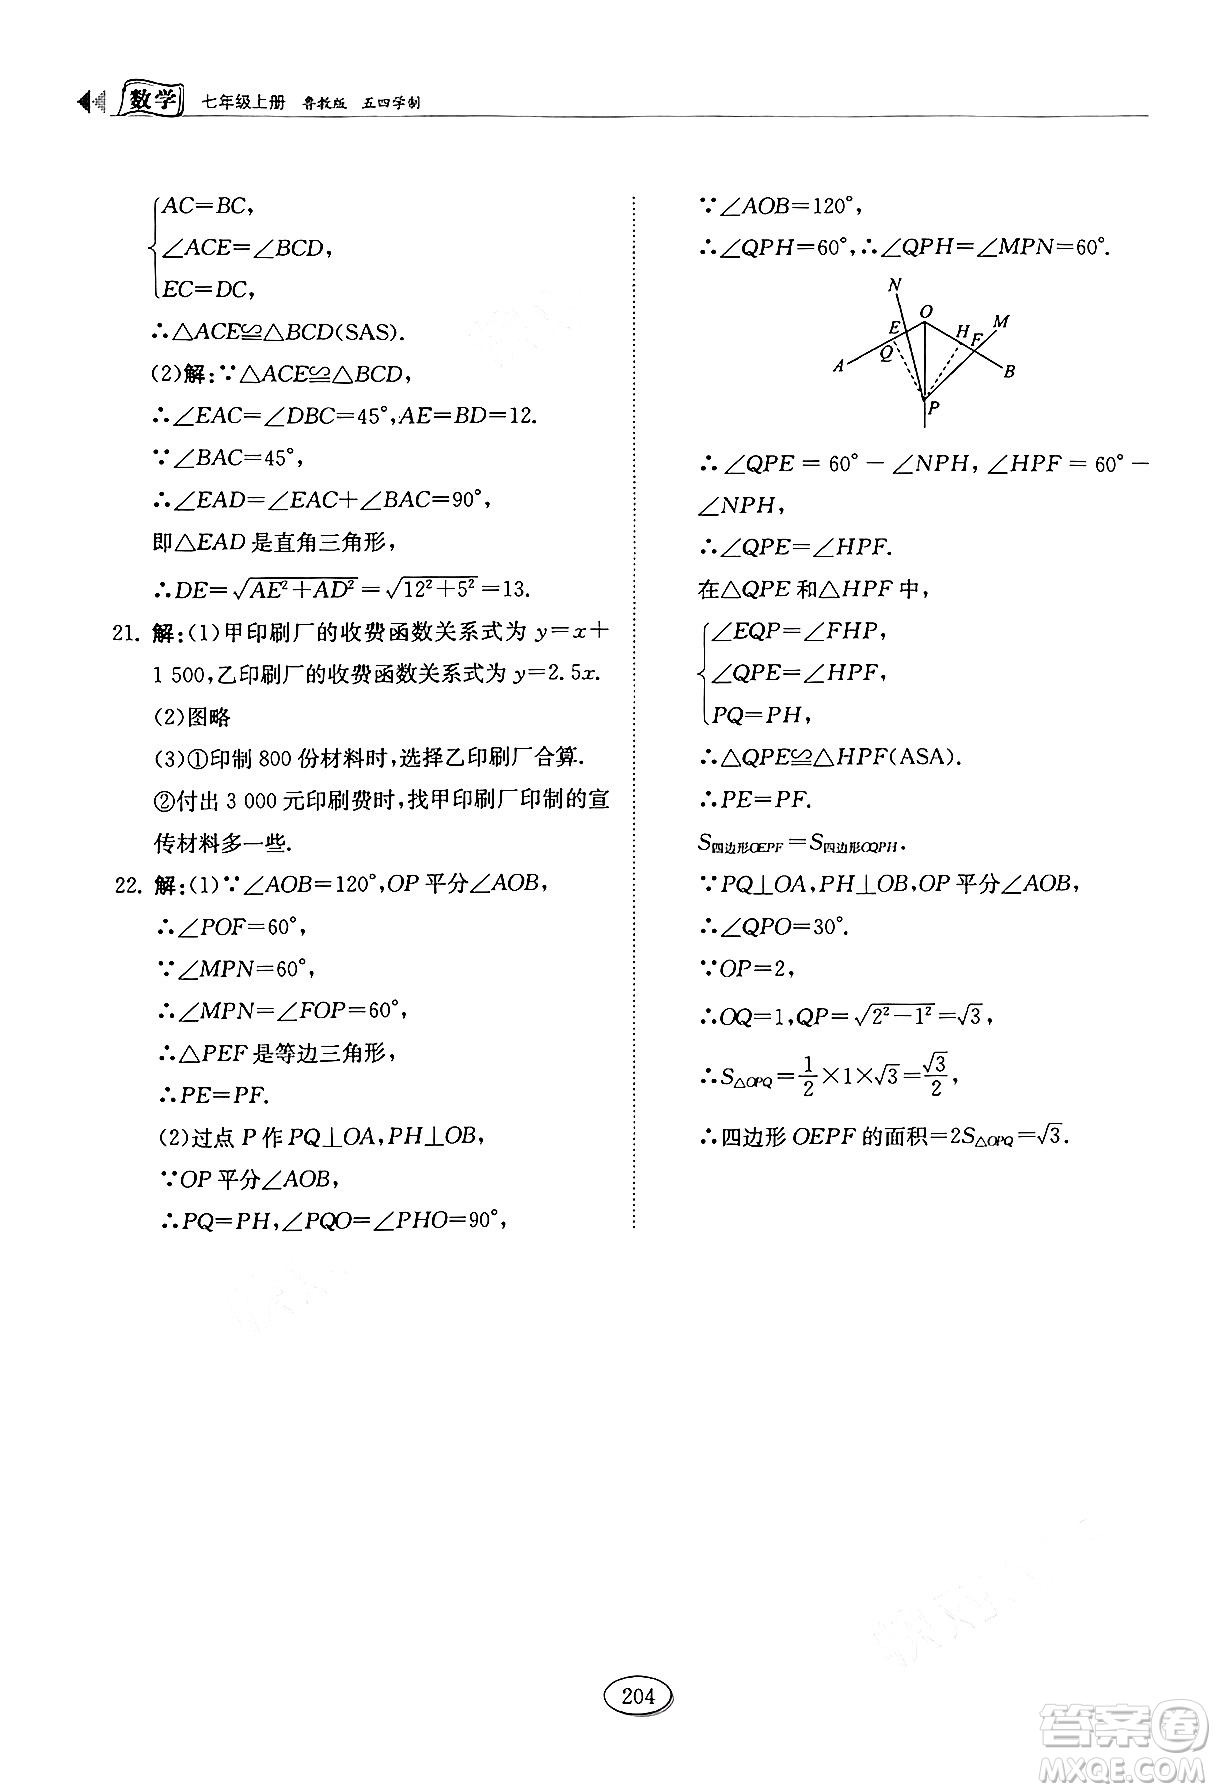 数学 七年级上册 鲁教版 五四学制
AC=BC,
∠ACE=∠BCD,
EC=DC,
∴△ACE≌△BCD(SAS).
(2)解:∵△ACE≌△BCD,
∴∠EAC=∠DBC=45°,AE=BD=12.
∵∠BAC=45°,
∴∠EAD=∠EAC+∠BAC=90°,
即△EAD是直角三角形,
∴DE=√(AE²+AD²)=√(12²+5²)=13.
21. 解:(1)甲印刷厂的收费函数关系式为 y=x+
1 500,乙印刷厂的收费函数关系式为 y=2.5x.
(2)图略
(3)①印制 800 份材料时,选择乙印刷厂合算.
②付出 3 000 元印刷费时,找甲印刷厂印制的宣
传材料多一些.
22. 解:(1)∵∠AOB=120°,OP平分∠AOB,
∴∠POF=60°,
∵∠MPN=60°,
∴∠MPN=∠FOP=60°,
∴△PEF是等边三角形,
∴PE=PF.
(2)过点P作PQ⊥OA,PH⊥OB,
∵OP平分∠AOB,
∴PQ=PH,∠PQO=∠PHO=90°,
∵∠AOB=120°,
∴∠QPH=60°,∴∠QPH=∠MPN=60°.
N
O
M
E
H
F
Q
A
B
P
∴∠QPE=60°−∠NPH,∠HPF=60°−
∠NPH,
∴∠QPE=∠HPF.
在△QPE和△HPF中,
∠EQP=∠FHP,
∠QPE=∠HPF,
PQ=PH,
∴△QPE≌△HPF(ASA).
∴PE=PF.
S四边形OEPF=S四边形OQPH.
∵PQ⊥OA,PH⊥OB,OP平分∠AOB,
∴∠QPO=30°.
∵OP=2,
∴OQ=1,QP=√(2²−1²)=√3,
∴S△OPQ=1/2×1×√3=√3/2,
∴四边形OEPF的面积=2S△OPQ=√3.
204
答案圈
MXQE.COM